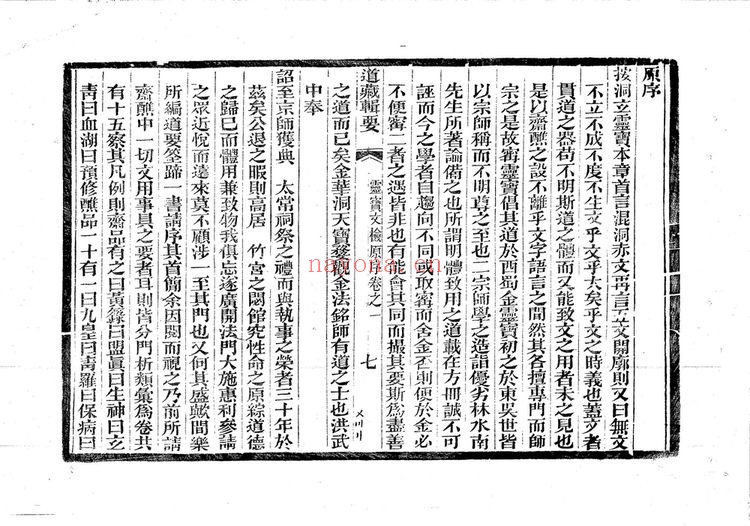 原序
按洞玄靈寶本章首言混洞赤文再言五文開廓則又曰無文
不立不成不度不生文乎文乎大矣乎文之時義也蓋文者
貫道之器苟不明斯道之體而又能致文之用者未之見也
是以齋醮之設不離乎文字語言之間然其各擅專門而師
宗之是故甯靈寶倡其道於西蜀金靈寶初之於東吳世皆
以宗師稱而不明尊之至也二宗師學之造詣優劣林水南
先生所著論備之也所謂明體致用之道載在方冊誠不可
誣而今之學者自趨向不同或取甯而舍金否則便於金必
不便甯二者之遇皆非也有能會其同而撮其要斯為盡善
道藏輯要
靈寶文檢原序卷之一
七
之道而已矣金華洞天寶婺觀金法銘師有道之士也洪武
中奉
詔至京師獲與 太常祠祭之禮而與執事之榮者三十年於
茲矣公退之暇則高居 竹宮之閟館究性命之原綜道德
之歸巳而體用兼致物我俱忘遂廣開法門大施惠利參請
之眾近悅而遠來莫不願涉一至其門也又何其盛歟間樂
所編道要筌蹄一書請序其首簡余因閱而視之乃前所請
齋醮中一切文用事具之要者耳則皆分門析類彙為卷共
有十五察其凡例則齋品有之曰黃籙曰盟眞曰生神曰玄
靑曰血湖曰預修醮品一十有一曰九皇曰靑羅曰保病曰
nayona.cn